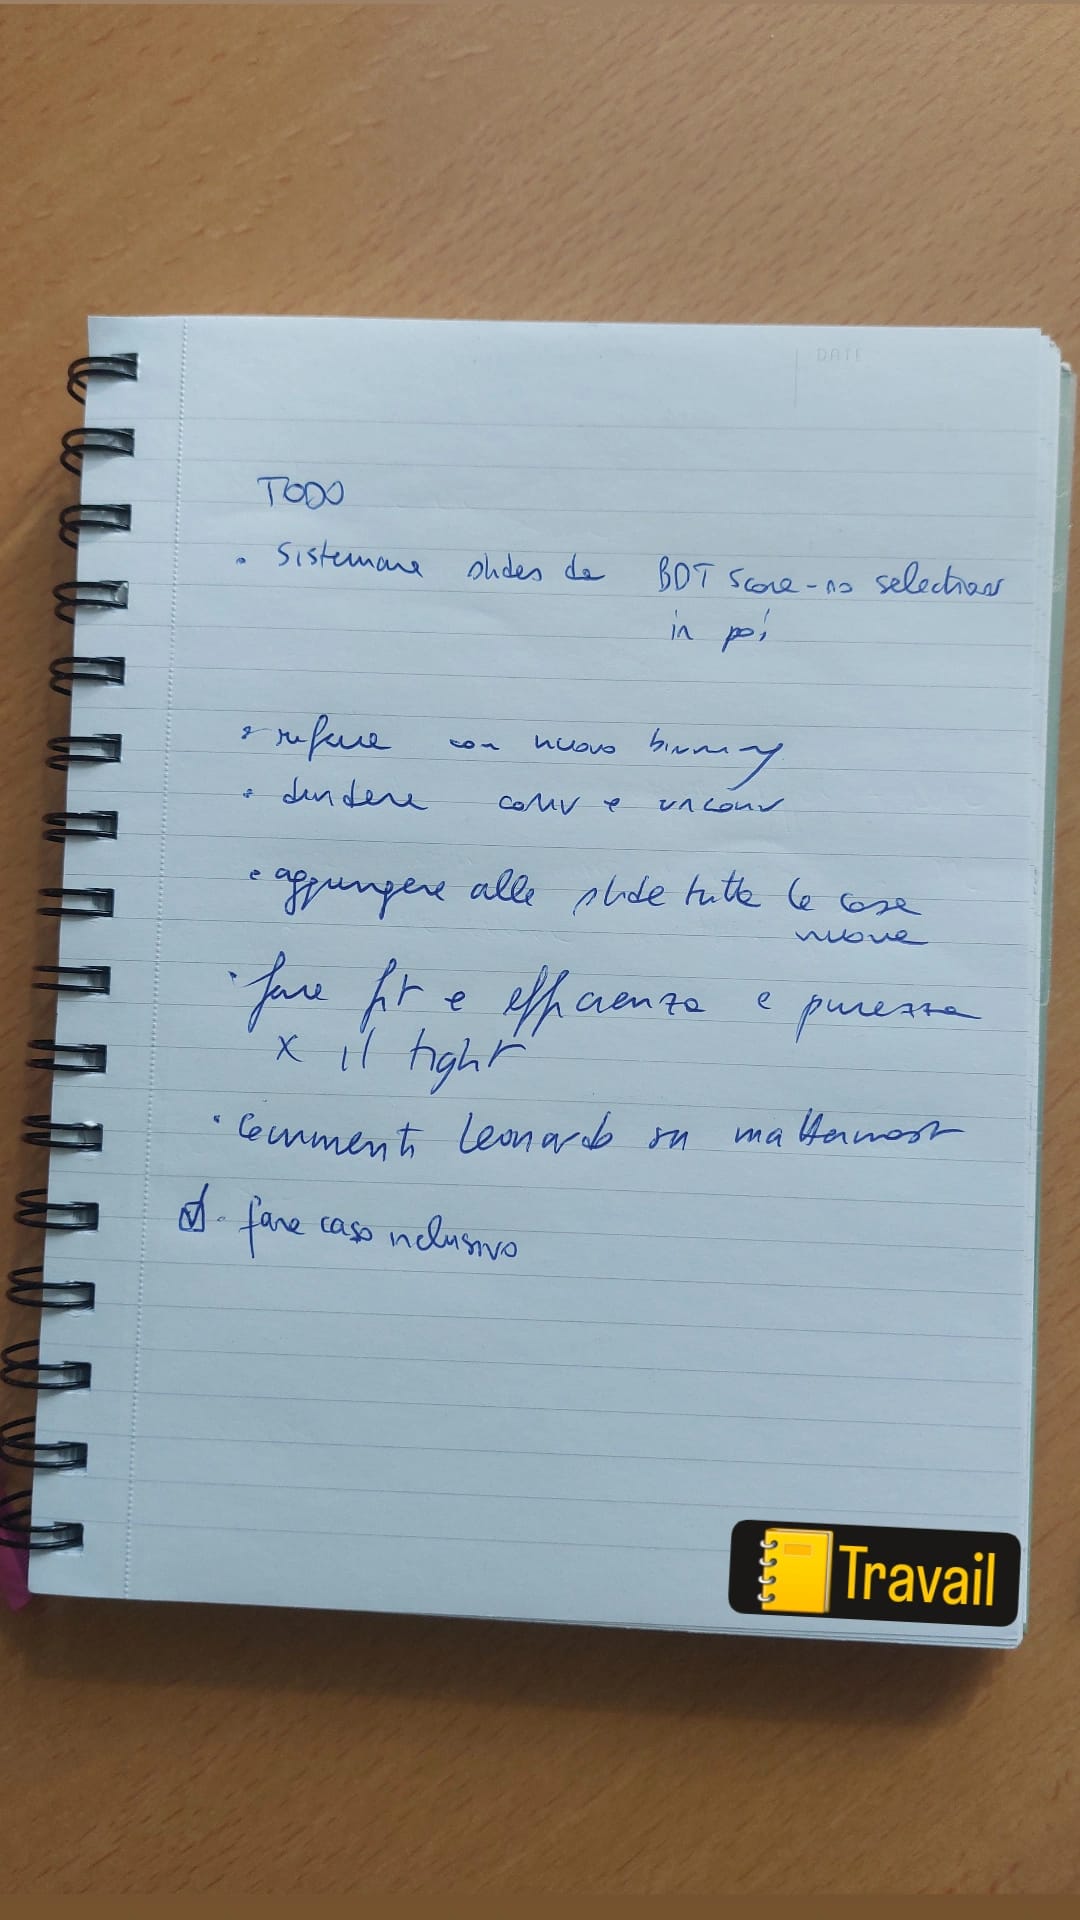 DATE
TODO
• Sistemare slides da BDT score-no selection
in poi
• rifare con nuovo binning
• dividere conv e unconv
• aggiungere alle slide tutte le cose
nuove
• fare fit e efficienza e purezza
x il tight
• Commenti Leonardo su mattermost
☑ • fare caso inclusivo
Travail